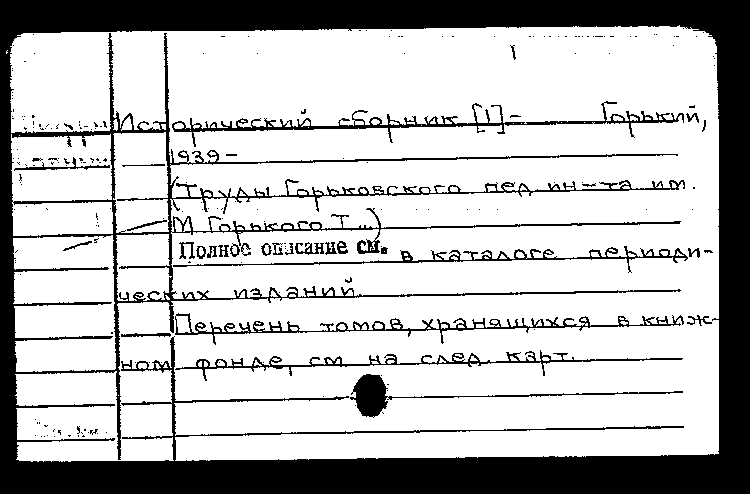 Исторический сборник [1]- Горький,
1939-
(Труды Горьковского пед ин-та им.
М Горького Т...)
Полное описание см. в каталоге периоди-
ческих изданий.
Перечень томов, хранящихся в книж-
ном фонде, см на след. карт.